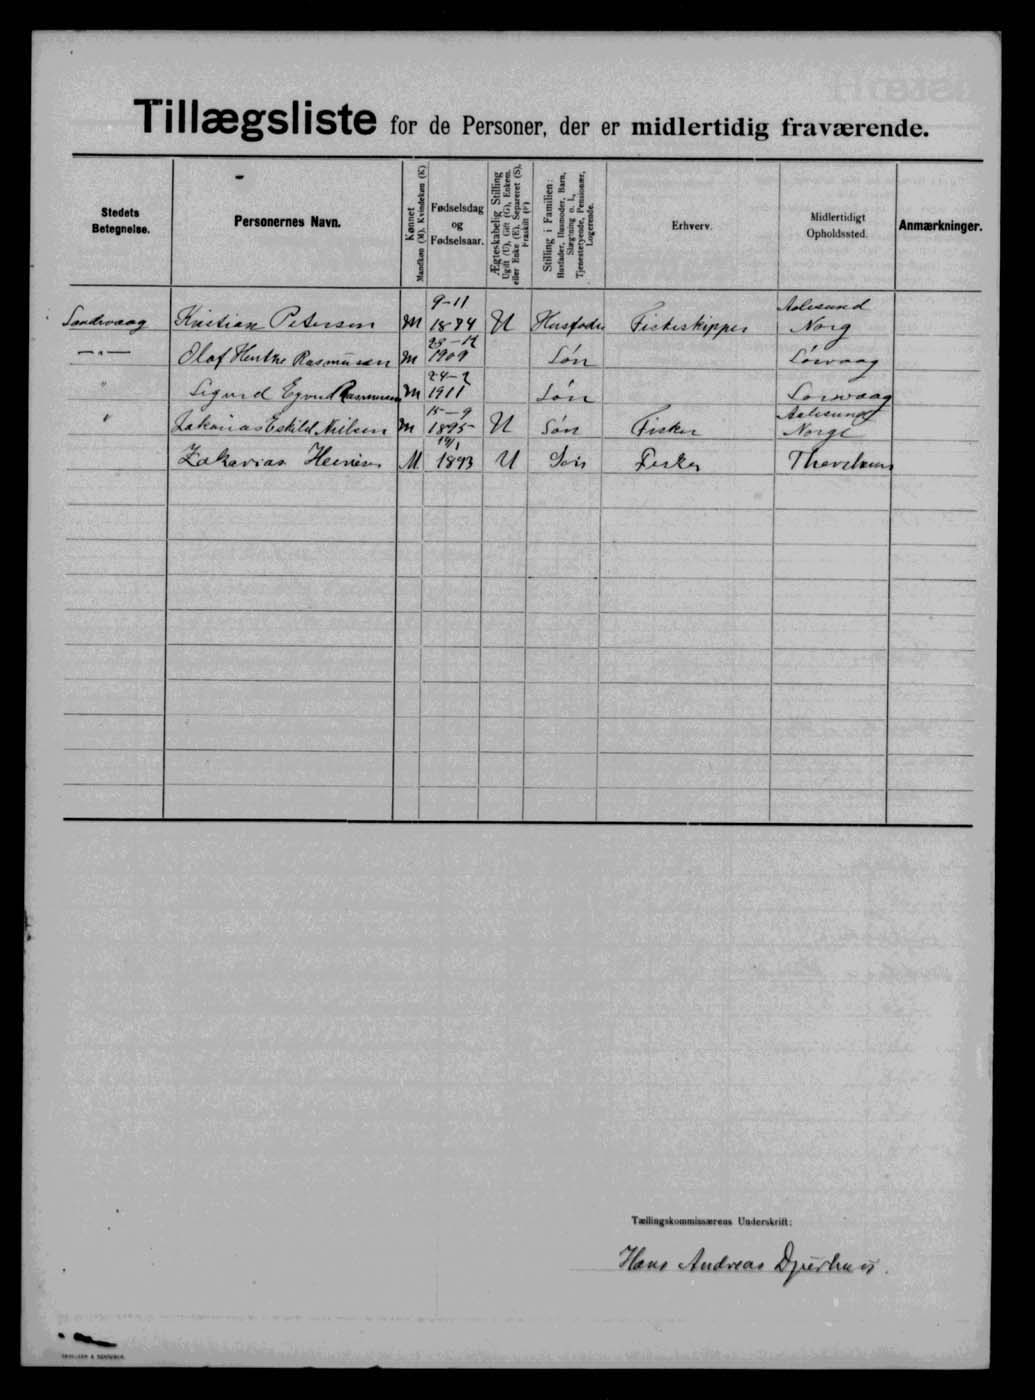 Tillægsliste for de Personer, der er midlertidig fraværende.
Stedets Betegnelse.
Personernes Navn.
Kønnet Mandkøn (M). Kvindekøn (K)
Fødselsdag og Fødselsaar.
Ægteskabelig Stilling Ugift (U), Gift (G), Enkem. eller Enke (E), Separeret (S), Fraskilt (F)
Stilling i Familien: Husfader, Husmoder, Barn, Slægtning o. l., Tjenestetyende, Pensionær, Logerende.
Erhverv.
Midlertidigt Opholdssted.
Anmærkninger.
Sandevaag Kristian Petersen M 9-11 1874 U Husfader Fiskeskipper Aalesund Norg
—"— Olaf Rasmussen M 23-12 1909 Søn Sørvaag
" Sigurd Rasmussen M 24-2 1911 Søn Sørvaag
" Eskild Nielsen M 15-9 1895 U Søn Fisker Aalesund Norge
Zakarias M 1893 U Søn Fisker
Tællingskommissærens Underskrift:
Hans Andreas Djurhuus.